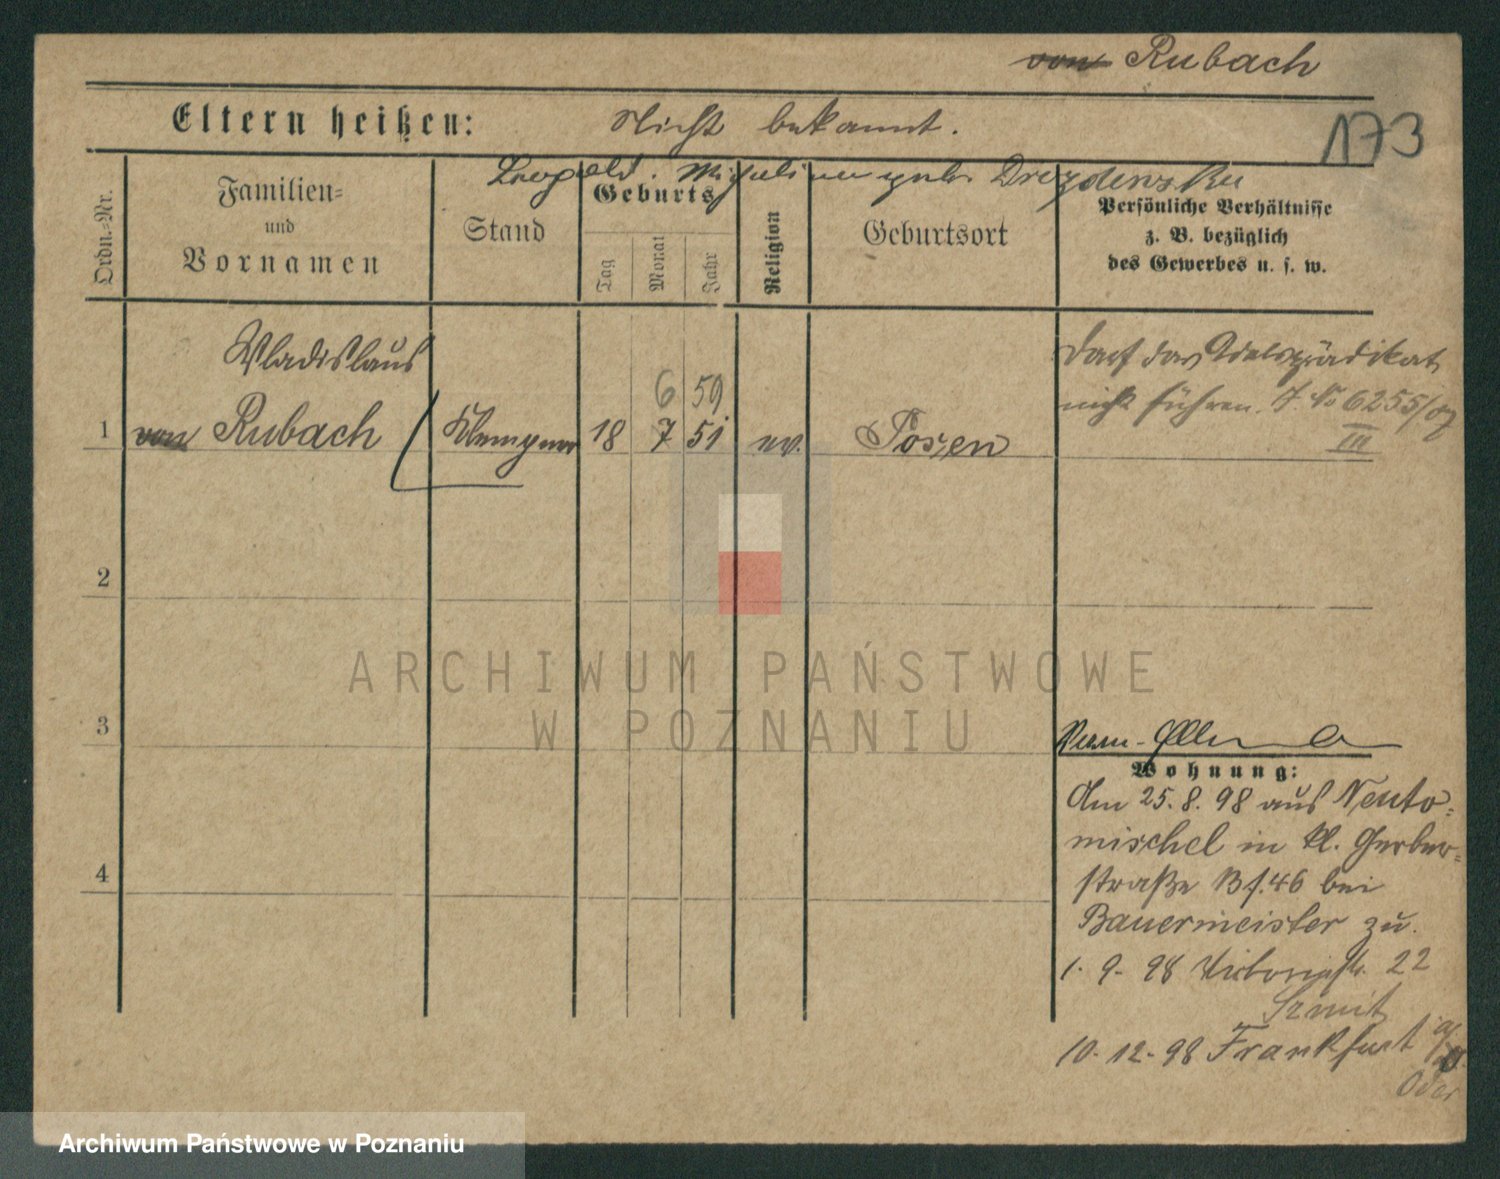 von Rubach
Eltern heißen: Nicht bekannt.
173
Leopold. Michalina geb. Drezdewska
Ordn.-Nr.
Familien-
und
Vornamen
Stand
Geburts
Tag
Monat
Jahr
Religion
Geburtsort
Persönliche Verhältnisse
z. B. bezüglich
des Gewerbes u. s. w.
Wladislaus
6 59
1 von Rubach Klempner 18 7 51 ev. Posen
Darf das Adelsprädikat
nicht führen. J. No 6255/07
III
2
3
4
Wohnung:
Am 25. 8. 98 aus Neuto-
mischel in kl. Gerber-
straße Bf. 46 bei
Bauermeister zu.
1. 9. 98 Victoriastr. 22
10. 12. 98 Frankfurt
Oder
ARCHIWUM PAŃSTWOWE
W POZNANIU
Archiwum Państwowe w Poznaniu